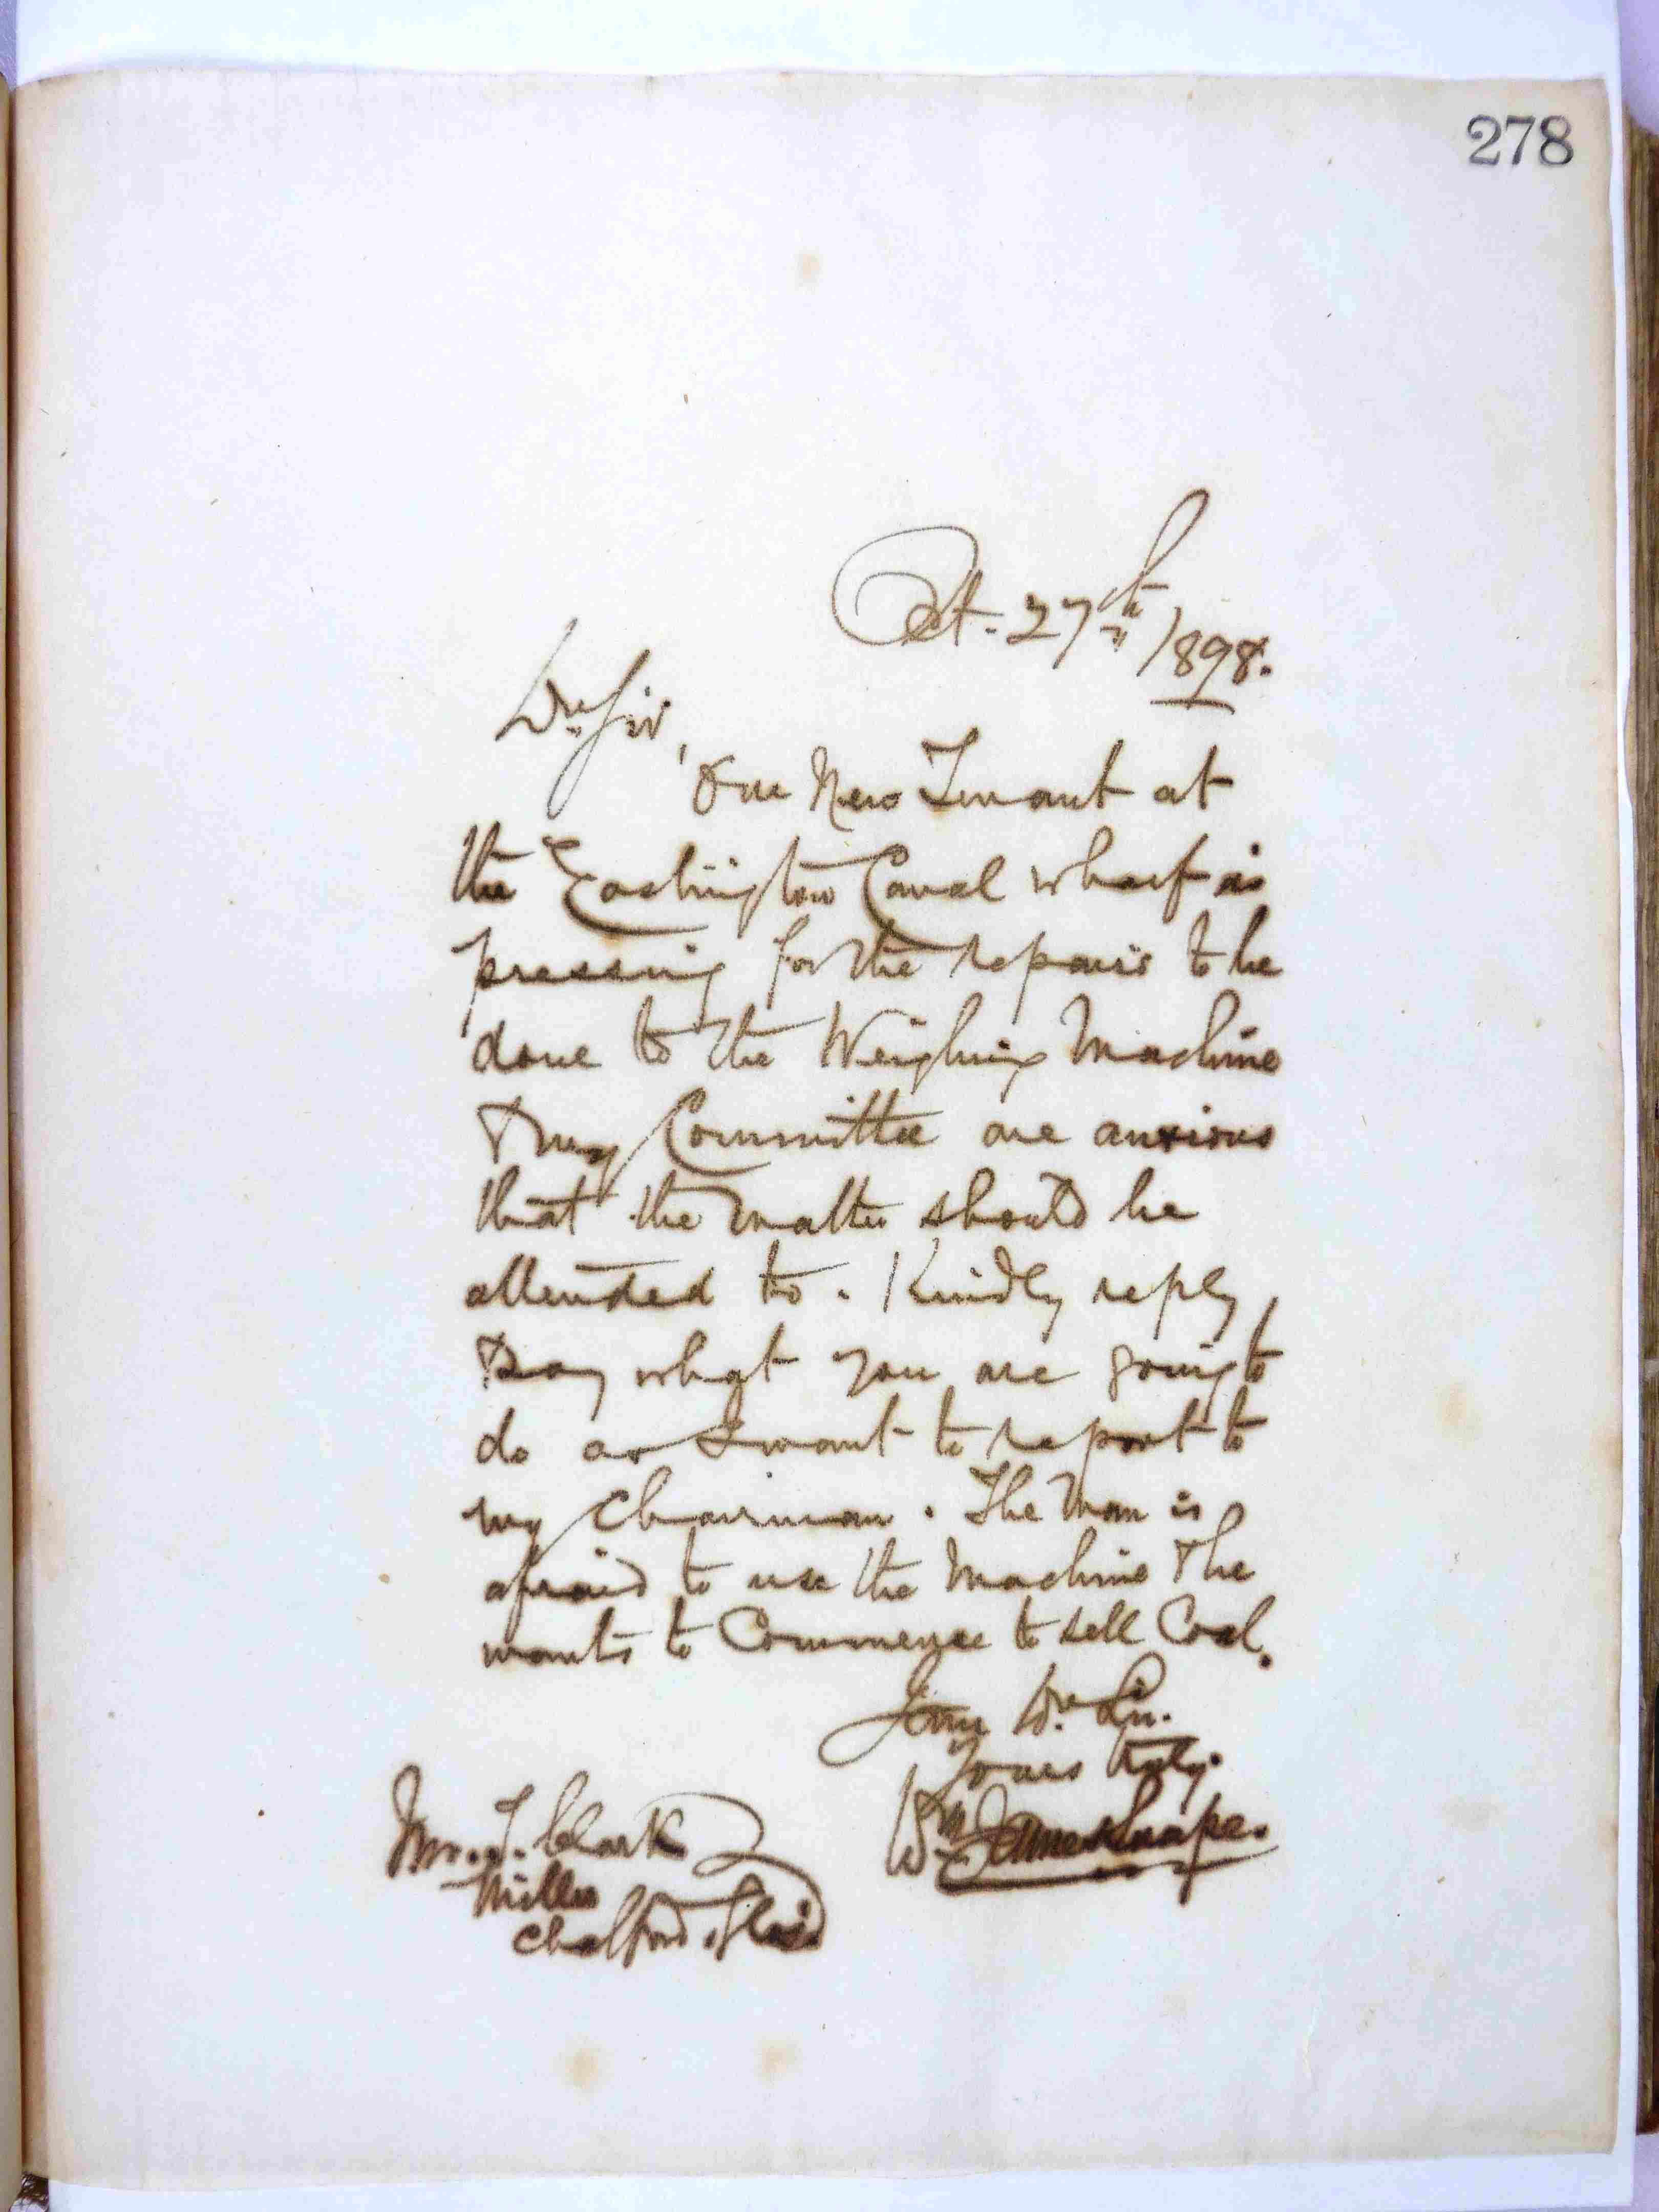 278
Oct. 27th 1898.
Dr Sir,
Our New Tenant at
the Eastington Canal wharf is
pressing for the repairs to be
done to the Weighing Machine
& my Committee are anxious
that the matter should be
attended to. Kindly reply
& say what you are going to
do as I want to report to
my Chairman. The man is
afraid to use the Machine & he
wants to Commence to sell Coal.
I am Dr Sir.
Yours truly.
Wm Jas Snape.
Mr. J. Clark
Miller
Chalford